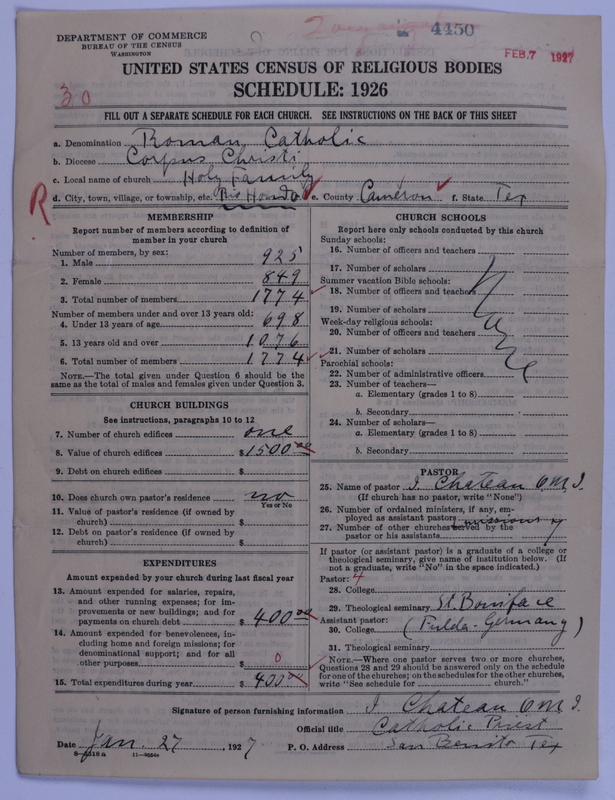 4450
DEPARTMENT OF COMMERCE
BUREAU OF THE CENSUS
WASHINGTON
FEB. 7 1927
UNITED STATES CENSUS OF RELIGIOUS BODIES
SCHEDULE: 1926
30
FILL OUT A SEPARATE SCHEDULE FOR EACH CHURCH. SEE INSTRUCTIONS ON THE BACK OF THIS SHEET
a. Denomination Roman Catholic
b. Diocese Corpus Christi
c. Local name of church Holy Family
R d. City, town, village, or township, etc. Rio Hondo e. County Cameron f. State Tex
MEMBERSHIP
Report number of members according to definition of
member in your church
Number of members, by sex:
1. Male 925
2. Female 849
3. Total number of members 1774
Number of members under and over 13 years old:
4. Under 13 years of age 698
5. 13 years old and over 1076
6. Total number of members 1774
NOTE.—The total given under Question 6 should be
the same as the total of males and females given under Question 3.
CHURCH BUILDINGS
See instructions, paragraphs 10 to 12
7. Number of church edifices one
8. Value of church edifices $1500 00
9. Debt on church edifices $
10. Does church own pastor's residence no
Yes or No
11. Value of pastor's residence (if owned by
church) $
12. Debt on pastor's residence (if owned by
church) $
EXPENDITURES
Amount expended by your church during last fiscal year
13. Amount expended for salaries, repairs,
and other running expenses; for im-
provements or new buildings; and for
payments on church debt $400 00
14. Amount expended for benevolences, in-
cluding home and foreign missions; for
denominational support; and for all
other purposes $ 0
15. Total expenditures during year $400
CHURCH SCHOOLS
Report here only schools conducted by this church
Sunday schools:
16. Number of officers and teachers
17. Number of scholars
Summer vacation Bible schools:
18. Number of officers and teachers
19. Number of scholars
Week-day religious schools:
20. Number of officers and teachers
21. Number of scholars
Parochial schools:
22. Number of administrative officers
23. Number of teachers—
a. Elementary (grades 1 to 8)
b. Secondary
24. Number of scholars—
a. Elementary (grades 1 to 8)
b. Secondary
none
PASTOR
25. Name of pastor J. Chateau O.M.I.
(If church has no pastor, write "None")
26. Number of ordained ministers, if any, em-
ployed as assistant pastors
27. Number of other churches served by the
pastor or his assistants 4
If pastor (or assistant pastor) is a graduate of a college or
theological seminary, give name of institution below. (If
not a graduate, write "No" in the space indicated.)
Pastor:
28. College
29. Theological seminary St. Boniface
Assistant pastor:
30. College (Fulda-Germany)
31. Theological seminary
NOTE.—Where one pastor serves two or more churches,
Questions 28 and 29 should be answered only on the schedule
for one of the churches; on the schedules for the other churches,
write "See schedule for church."
Signature of person furnishing information J. Chateau OMI.
Official title Catholic Priest
Date Jan. 27, 1927 P. O. Address San Benito Tex